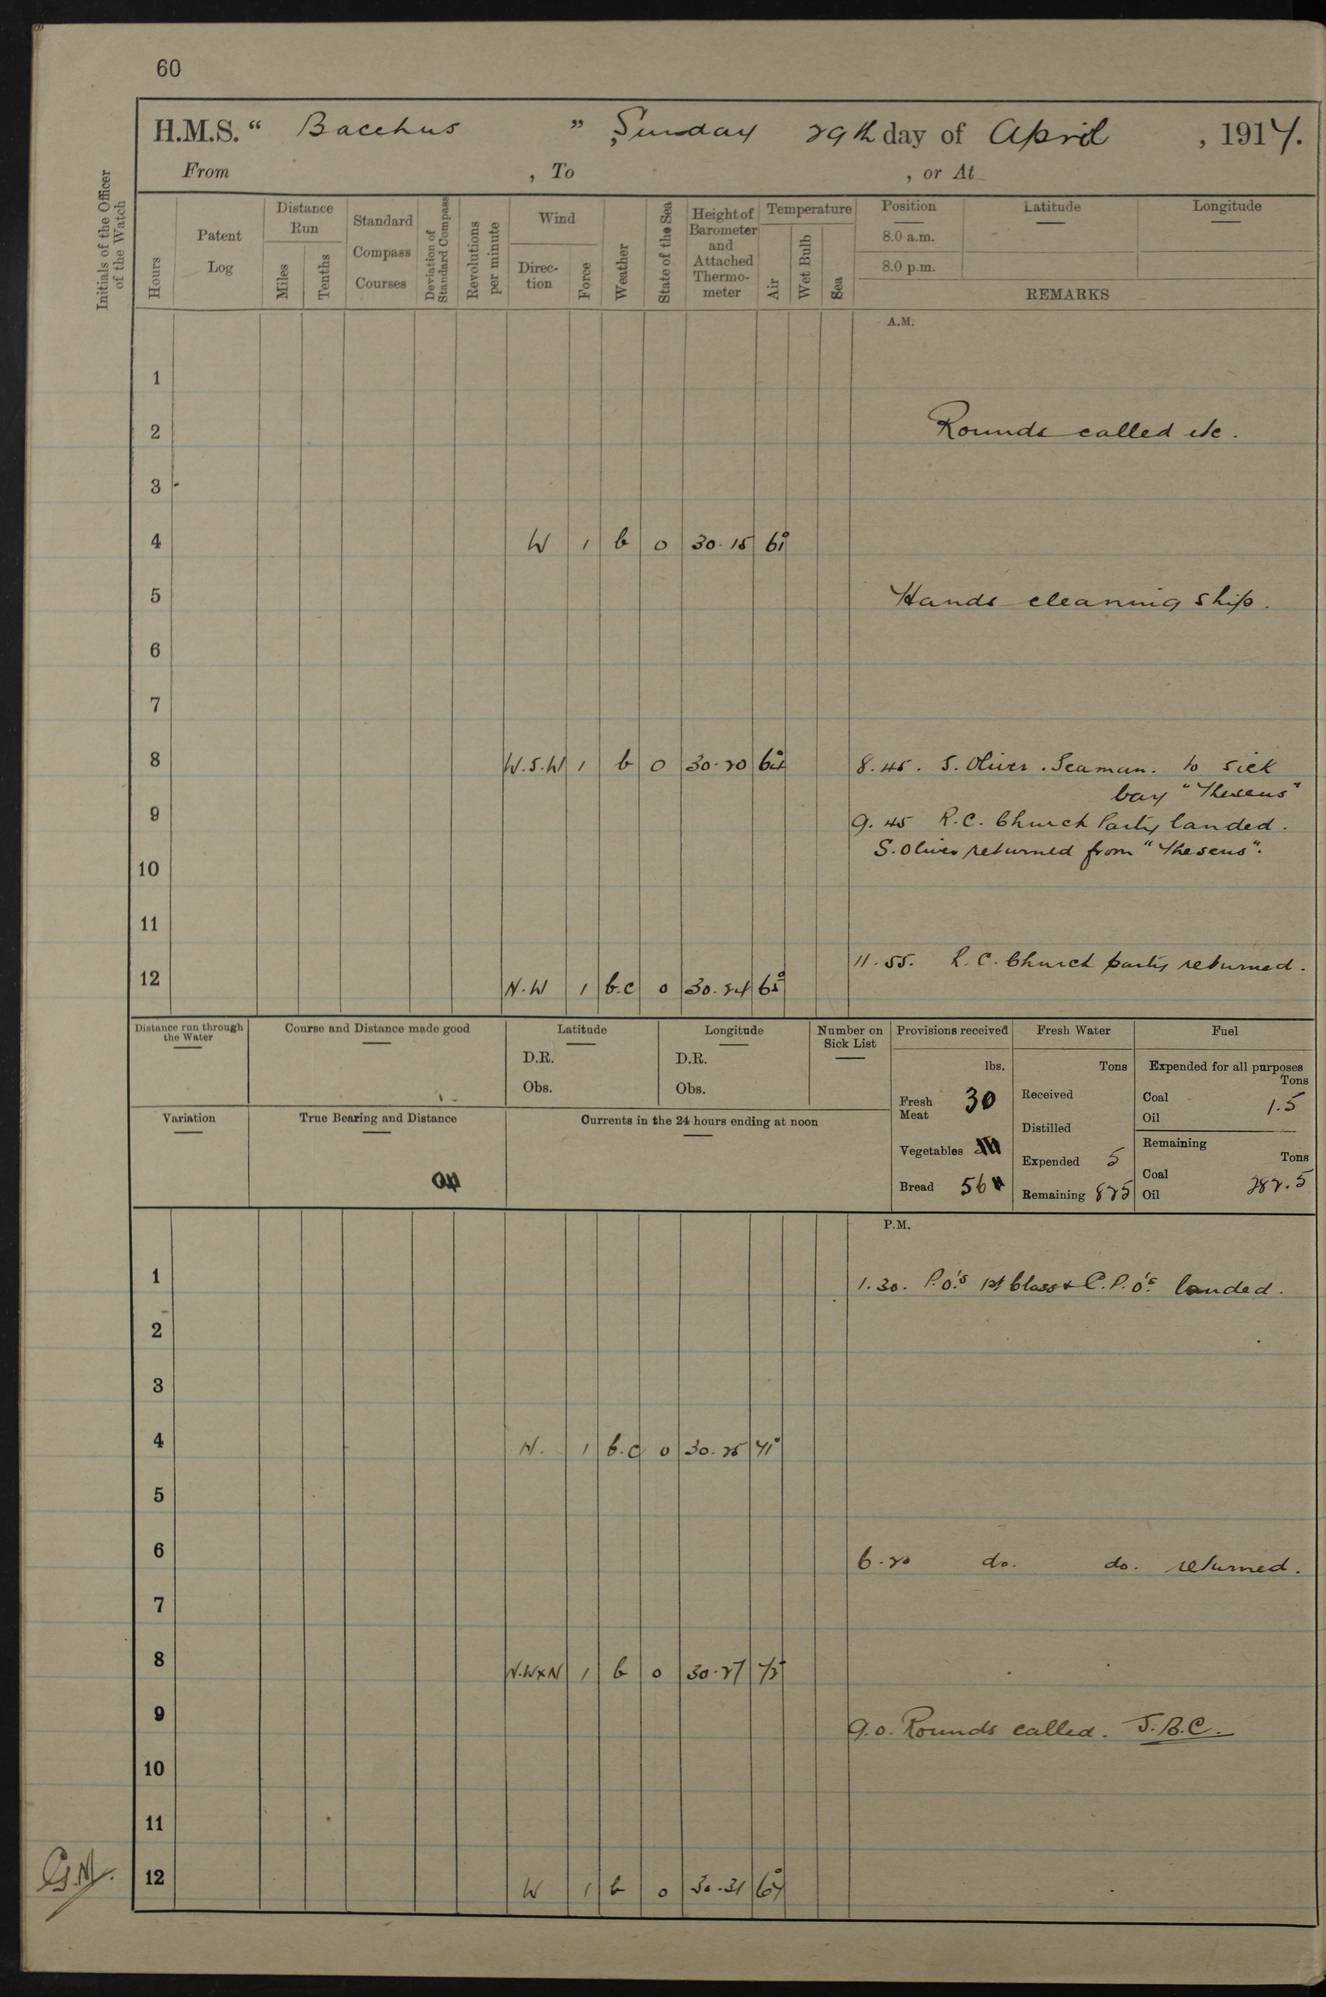 60
H.M.S. “ Bacchus ” , Sunday 29th day of April , 1917.
From , To , or At
Initials of the Officer of the Watch
Hours
Patent Log
Distance Run
Miles
Tenths
Standard Compass Courses
Deviation of Standard Compass
Revolutions per minute
Wind
Direc-tion
Force
Weather
State of the Sea
Height of Barometer and Attached Thermo-meter
Temperature
Air
Wet Bulb
Sea
Position Latitude Longitude
8.0 a.m.
8.0 p.m.
REMARKS
A.M.
1
2 Rounds called etc.
3
4 W 1 b 0 30.15 61°
5 Hands cleaning ship.
6
7
8 W.S.W 1 b 0 30.20 64° 8.45. S. Oliver. Seaman. to sick
bay "Theseus"
9 9.45 R.C. Church Party landed.
S. Oliver returned from "Theseus".
10
11
11.55. R.C. Church party returned.
12 N.W 1 b.c 0 30.24 65°
Distance run through the Water
Course and Distance made good
Latitude
D.R.
Obs.
Longitude
D.R.
Obs.
Number on Sick List
Variation
True Bearing and Distance
Currents in the 24 hours ending at noon
Provisions received
lbs.
Fresh Meat 30
Vegetables
Bread 56
Fresh Water
Tons
Received
Distilled
Expended 5
Remaining 825
Fuel
Expended for all purposes
Tons
Coal
Oil 1.5
Remaining
Tons
Coal
Oil 282.5
P.M.
1 1.30. P.O's 1st Class & C.P.O's. landed.
2
3
4 N. 1 b.c 0 30.25 71°
5
6 6.20 do. do. returned.
7
8 N.WxN 1 b 0 30.27 72
9 9.0. Rounds called. J.B.C.
10
11
12 W 1 b 0 30.31 67°
G.M.